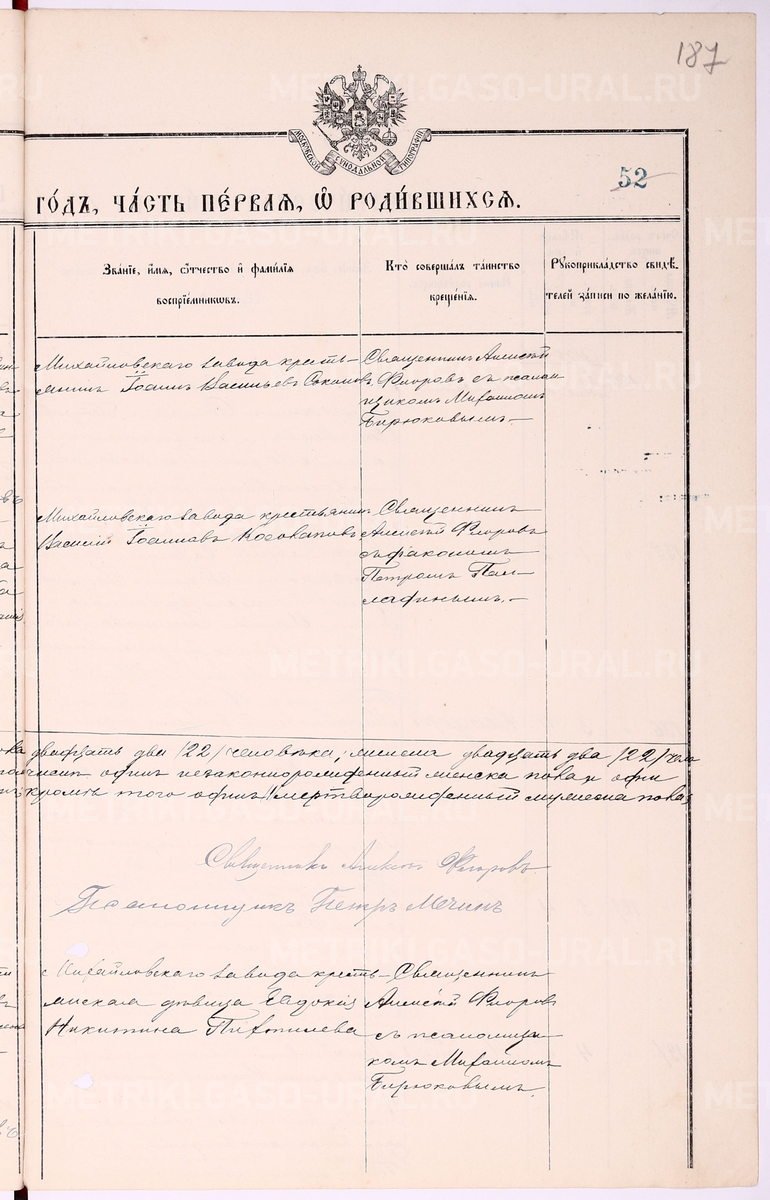 187
МОСКОВСКОЙ СѴНОДАЛЬНОЙ ТИПОГРАФІИ
52
ГО́ДЪ, ЧА́СТЬ ПЕ́РВАЯ, Ѡ҆ РОДИ́ВШИХСЯ.
Зва́нїе, и҆́мя, ѻ҆́тчество и҆ фами́лїя
воспрїе́мникѡвъ.
Кто̀ соверша́лъ та́инство
креще́нїя.
Рꙋкоприкла́дство свидѣ́-
телей за́писи по жела́нїю.
Михайловскаго завода кресть-
янинъ Іоаннъ Васильевъ
Священникъ Алексѣй
Флоровъ съ псалом
щикомъ Михаиломъ
Бирюковымъ.
Михайловскаго завода крестьянинъ
Василій Іоанновъ
Священникъ
Алексѣй Флоровъ
съ діакономъ
Петромъ
двадцать два /22/ человѣка, женска двадцать два /22/ чело
одинъ незаконнорожденный женска пола и одн
кромѣ того одинъ мертворожденный мужеска пола
Священникъ Алексѣй Флоровъ
Псаломщикъ Петръ Мечинъ
Михайловскаго завода кресть-
янская дѣвица Евдокія
Никитина
Священникъ
Алексѣй Флоровъ
съ псаломщи
комъ Михаиломъ
Бирюковымъ.
METRIKI.GASO-URAL.RU